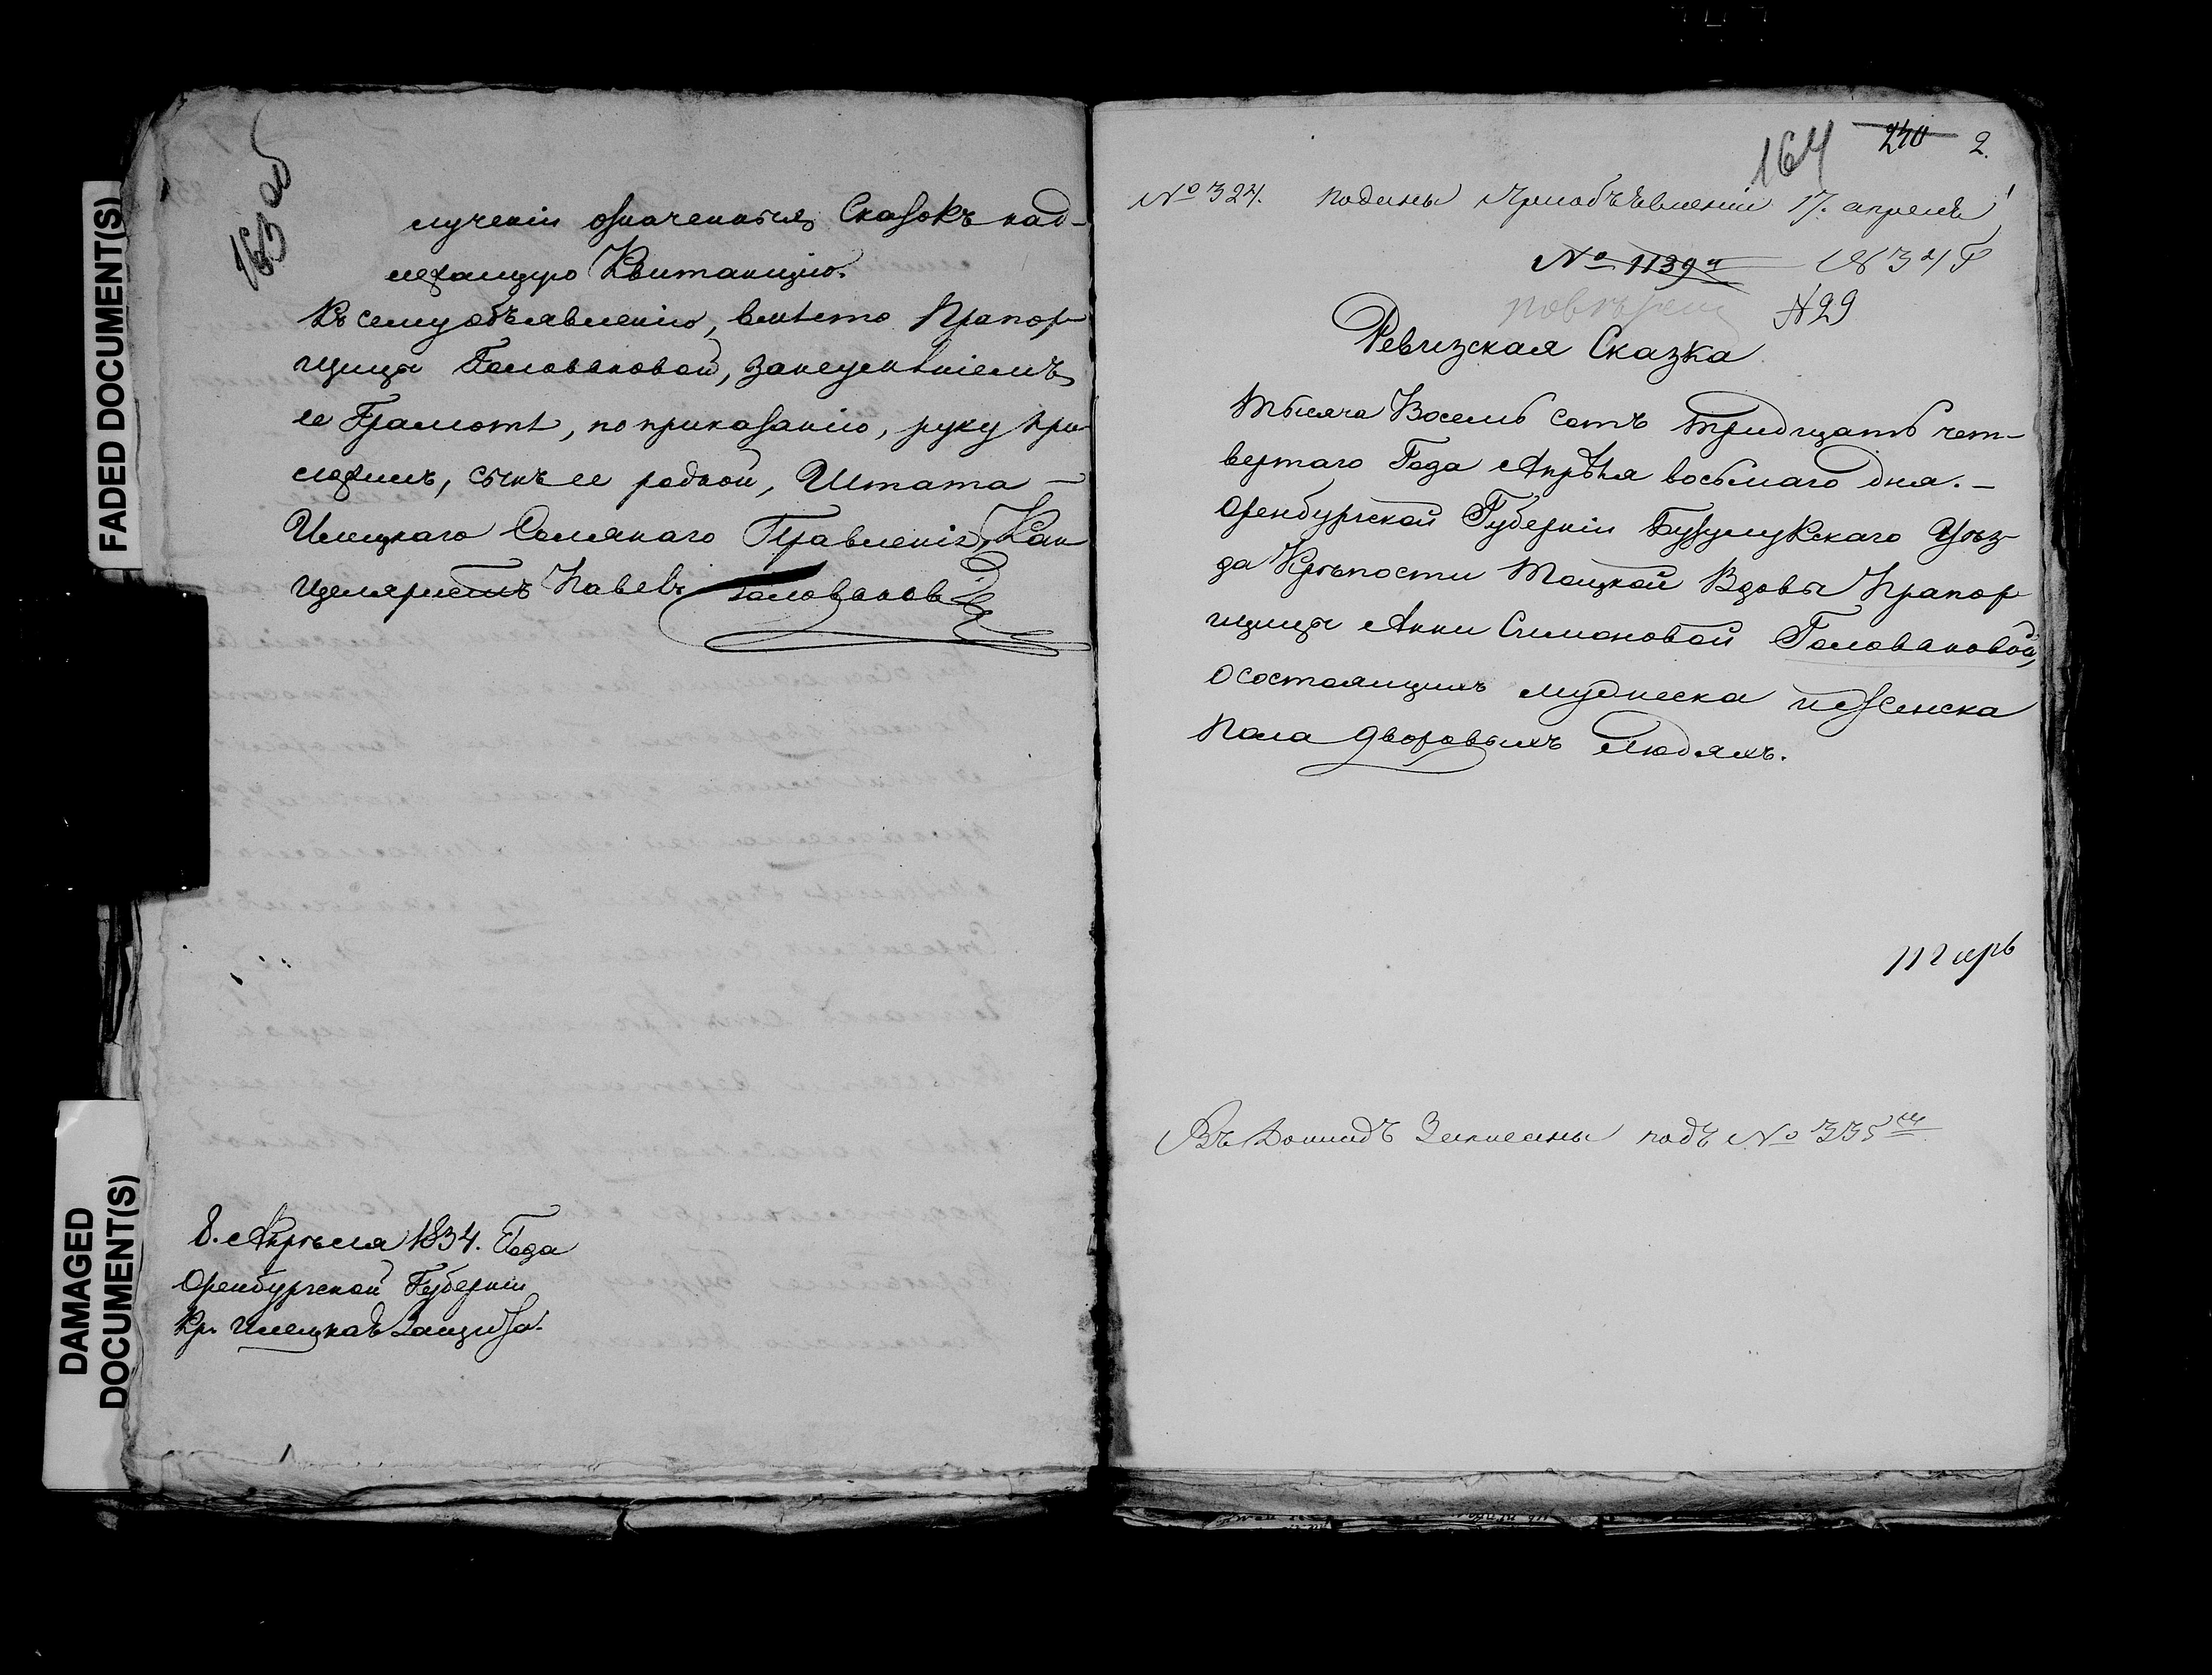 FADED DOCUMENT(S)
DAMAGED
DOCUMENT(S)
163 об
лученіи означенныхъ Сказокъ над-
лежащую Квитанцію.
Къ сему объявленію, вмѣсто Прапор-
щицы Головановой, занеумѣніемъ
ее Грамотѣ, по приказанію, руку при-
ложилъ, сынъ ее родной, Штата
Илецкаго Солянаго Правленія, Кан
целяристъ Павелъ Головановъ
8. Апрѣля 1834. Года
Оренбургской Губерніи
Кр. Илецкая Защита.
164 240 2.
№ 324. поданы приобъявленіи 17. апреля
№ 1139 1834 Г
№ 29
Ревизская Сказка
Тысяча Восемь сотъ тридцать чет-
вертаго Года Апрѣля восьмаго дня. –
Оренбургской Губерніи Бузулукскаго Уѣз-
да Крѣпости Тоцкой Вдовы Прапор
щицы Анны Симоновой Головановой,
О состоящихъ мужеска и женска
пола дворовыхъ людяхъ.
Въ записаны подъ № 335